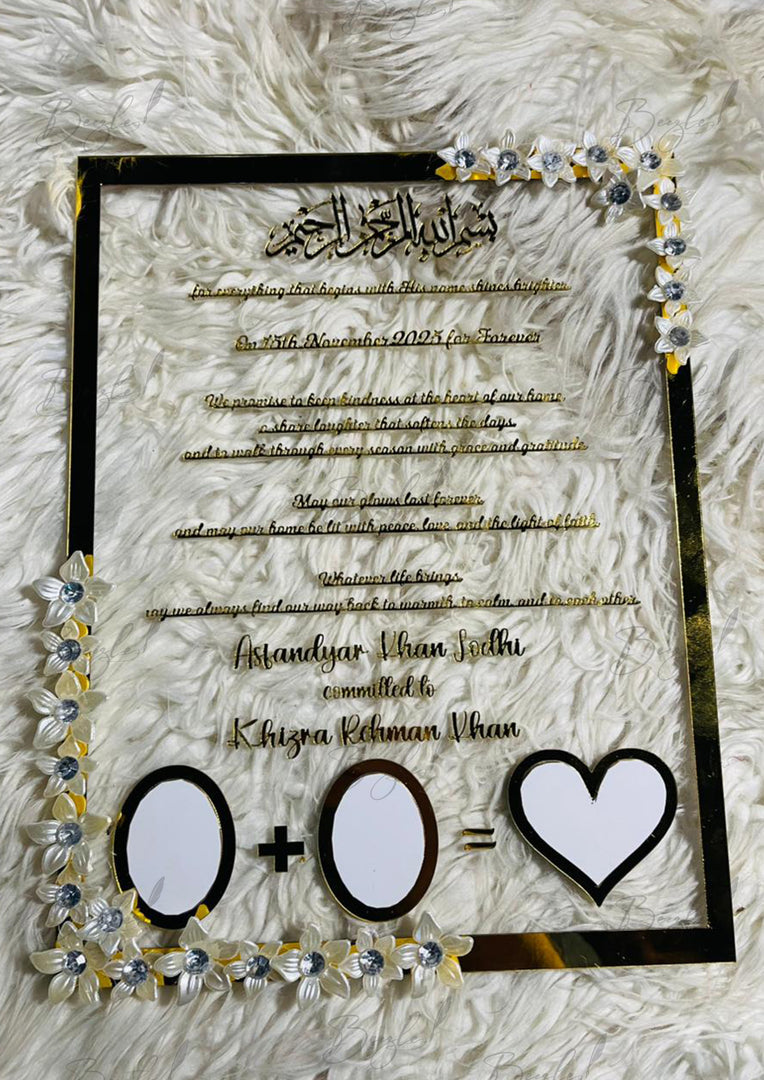 بسم الله الرحمن الرحيم
for everything that begins with His name shines brighter.
On 15th November 2025 for Forever
We promise to keep kindness at the heart of our home,
o share laughter that softens the days,
and to walk through every season with grace and gratitude.
May our glows last forever,
and may our home be lit with peace, love, and the light of faith.
Whatever life brings,
ay we always find our way back to warmth, to calm, and to each other.
Asfandyar Khan Lodhi
committed to
Khizra Rehman Khan
+ =
Beezles